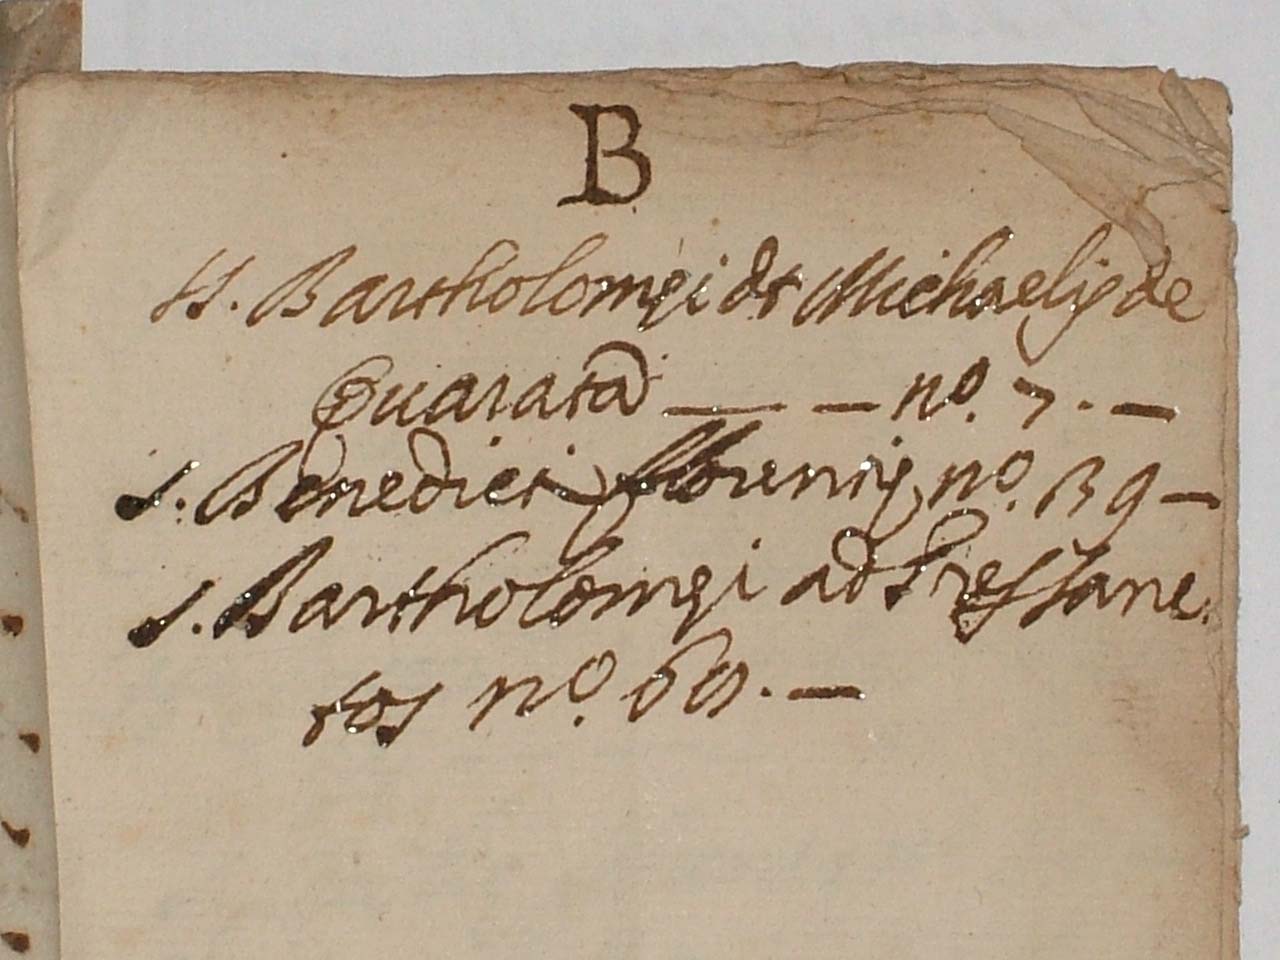 B
SS. Bartholomęi et Michaelis de
Quarata — — nº. 7. —
S. Benedicti Florentię nº. 39 —
S. Bartholomęi ad Pressane
tos nº. 69. —